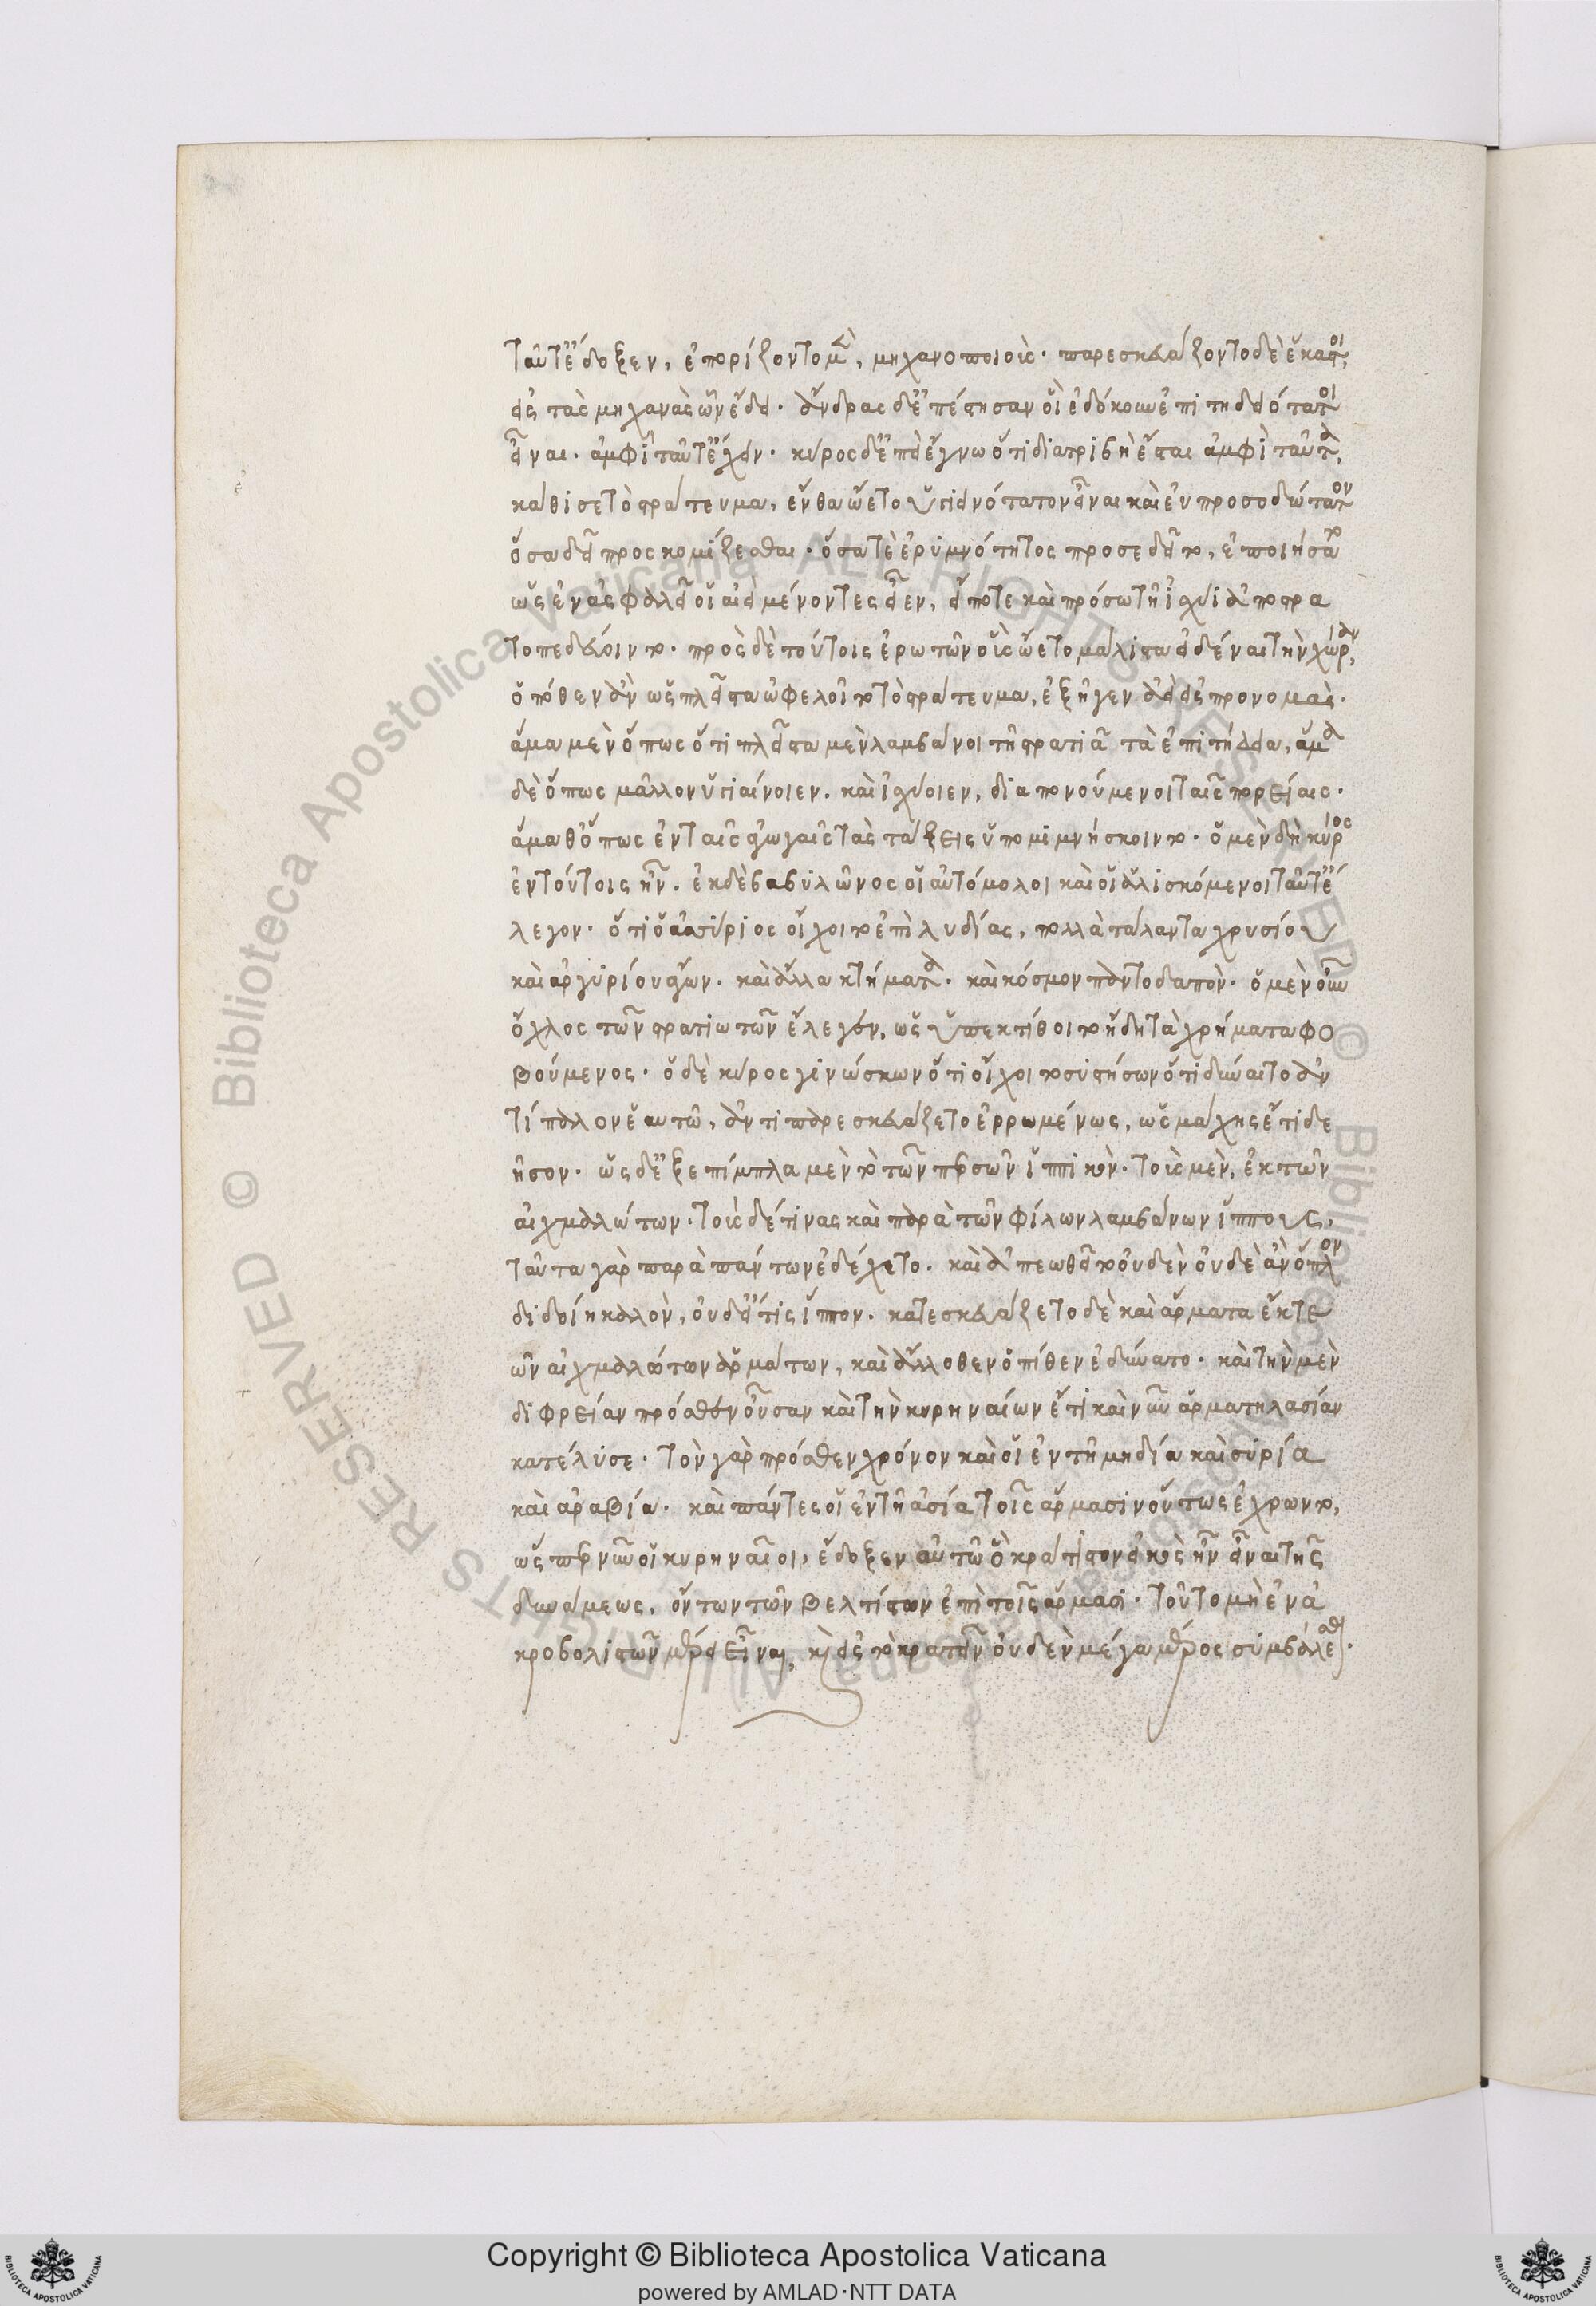 ταῦτ' ἔδοξεν, ἐπορίζοντο μὲν, μηχανοποιοὺς· παρεσκευάζοντο δὲ ἕκαστοι
εἰς τὰς μηχανὰς ὧν ἔδει. ἄνδρας δ' ἐπέστησαν οἳ ἐδόκουν ἐπιτηδειότατοι
εἶναι. ἀμφὶ ταῦτ' ἔχειν. κύρος δ' ἐπεὶ ἔγνω ὅτι διατριβὴ ἔσται ἀμφὶ ταῦτα,
καθίσε τὸ στράτευμα, ἔνθα ᾤετο ὑγιεινότατον εἶναι καὶ εὐπροσοδώτατον
ὅσα δεῖ προσκομίζεσθαι. ὅσα τὲ ἐρυμνότητος προσεδεῖτο, ἐποιήσατο
ὡς ἐν ἀσφαλεῖ οἱ αἰεὶ μένοντες εἶεν, εἴποτε καὶ πρόσω τῇ ἰσχύϊ ἀποστρα
τοπεδεύοιντο. πρὸς δὲ τούτοις ἐρωτῶν οὓς ᾤετο μάλιστα εἰδέναι τὴν χώραν,
ὁπόθεν ἂν ὡς πλεῖστα ὠφελοῖτο τὸ στράτευμα, ἐξῆγεν ἀεὶ εἰς προνομὰς.
ἅμα μὲν ὅπως ὅτι πλεῖστα μὲν λαμβάνοι τῇ στρατιᾷ τὰ ἐπιτήδεια, ἅμα
δὲ ὅπως μᾶλλον ὑγιαίνοιεν. καὶ ἰσχύοιεν, διαπονούμενοι ταῖς πορείαις.
ἅμα θ' ὅπως ἐν ταῖς ἀγωγαῖς τὰς τάξεις ὑπομιμνήσκοιντο. ὁ μὲν δὴ κύρος
ἐν τούτοις ἦν. ἐκ δὲ βαβυλῶνος οἱ αὐτόμολοι καὶ οἱ ἁλισκόμενοι ταῦτ' ἔ
λεγον. ὅτι ὁ ἀσσύριος οἴχοιτο ἐπὶ λυδίας, πολλὰ τάλαντα χρυσίου
καὶ ἀργυρίου ἄγων. καὶ ἄλλα κτήματα. καὶ κόσμον παντοδαπὸν. ὁ μὲν οὖν
ὄχλος τῶν στρατιωτῶν ἔλεγεν, ὡς ὑπεκτίθοιτο ἤδη τὰ χρήματα φο
βούμενος. ὁ δὲ κύρος γινώσκων ὅτι οἴχοιτο συστήσων ὅτι δύναιτο ἀν
τίπαλον ἑαυτῷ, ἀντιπαρεσκευάζετο ἐρρωμένως, ὡς μάχης ἔτι δε
ῆσον. ὡς δ' ἐξεπίμπλα μὲν τὸ τῶν περσῶν ἱππικὸν. τοὺς μὲν, ἐκ τῶν
αἰχμαλώτων. τοὺς δέ τινας καὶ παρὰ τῶν φίλων λαμβάνων ἵππους.
ταῦτα γὰρ παρὰ πάντων ἐδέχετο. καὶ ἀπεωθεῖτο οὐδὲν οὐδὲ ἂν ὅπλον
διδοίη καλὸν, οὐδ' εἴ τις ἵππον. κατεσκευάζετο δὲ καὶ ἅρματα ἔκ τε
ὧν αἰχμαλώτων ἁρμάτων, καὶ ἄλλοθεν ὁπόθεν ἐδύνατο. καὶ τὴν μὲν
διφρείαν πρόσθεν οὖσαν καὶ τὴν κυρηναίων ἔτι καὶ νῦν ἁρματηλασίαν
κατέλυσε. τὸν γὰρ πρόσθεν χρόνον καὶ οἱ ἐν τῇ μηδία καὶ συρία
καὶ ἀραβία. καὶ πάντες οἱ ἐν τῇ ἀσία τοῖς ἅρμασιν οὕτως ἐχρῶντο,
ὥσπερ νῦν οἱ κυρηναῖοι, ἔδοξεν αὐτῷ ὃ κράτιστον εἰκὸς ἦν εἶναι τῆς
δυνάμεως, ὄντων τῶν βελτίστων ἐπὶ τοῖς ἅρμασι. τοῦτο μὴ ἐν ἀ
κροβολιστῶν μέρει εἶναι, καὶ εἰς τὸ κρατεῖν οὐδὲν μέγα μέρος συμβάλλεσθαι.
Copyright © Biblioteca Apostolica Vaticana
powered by AMLAD·NTT DATA